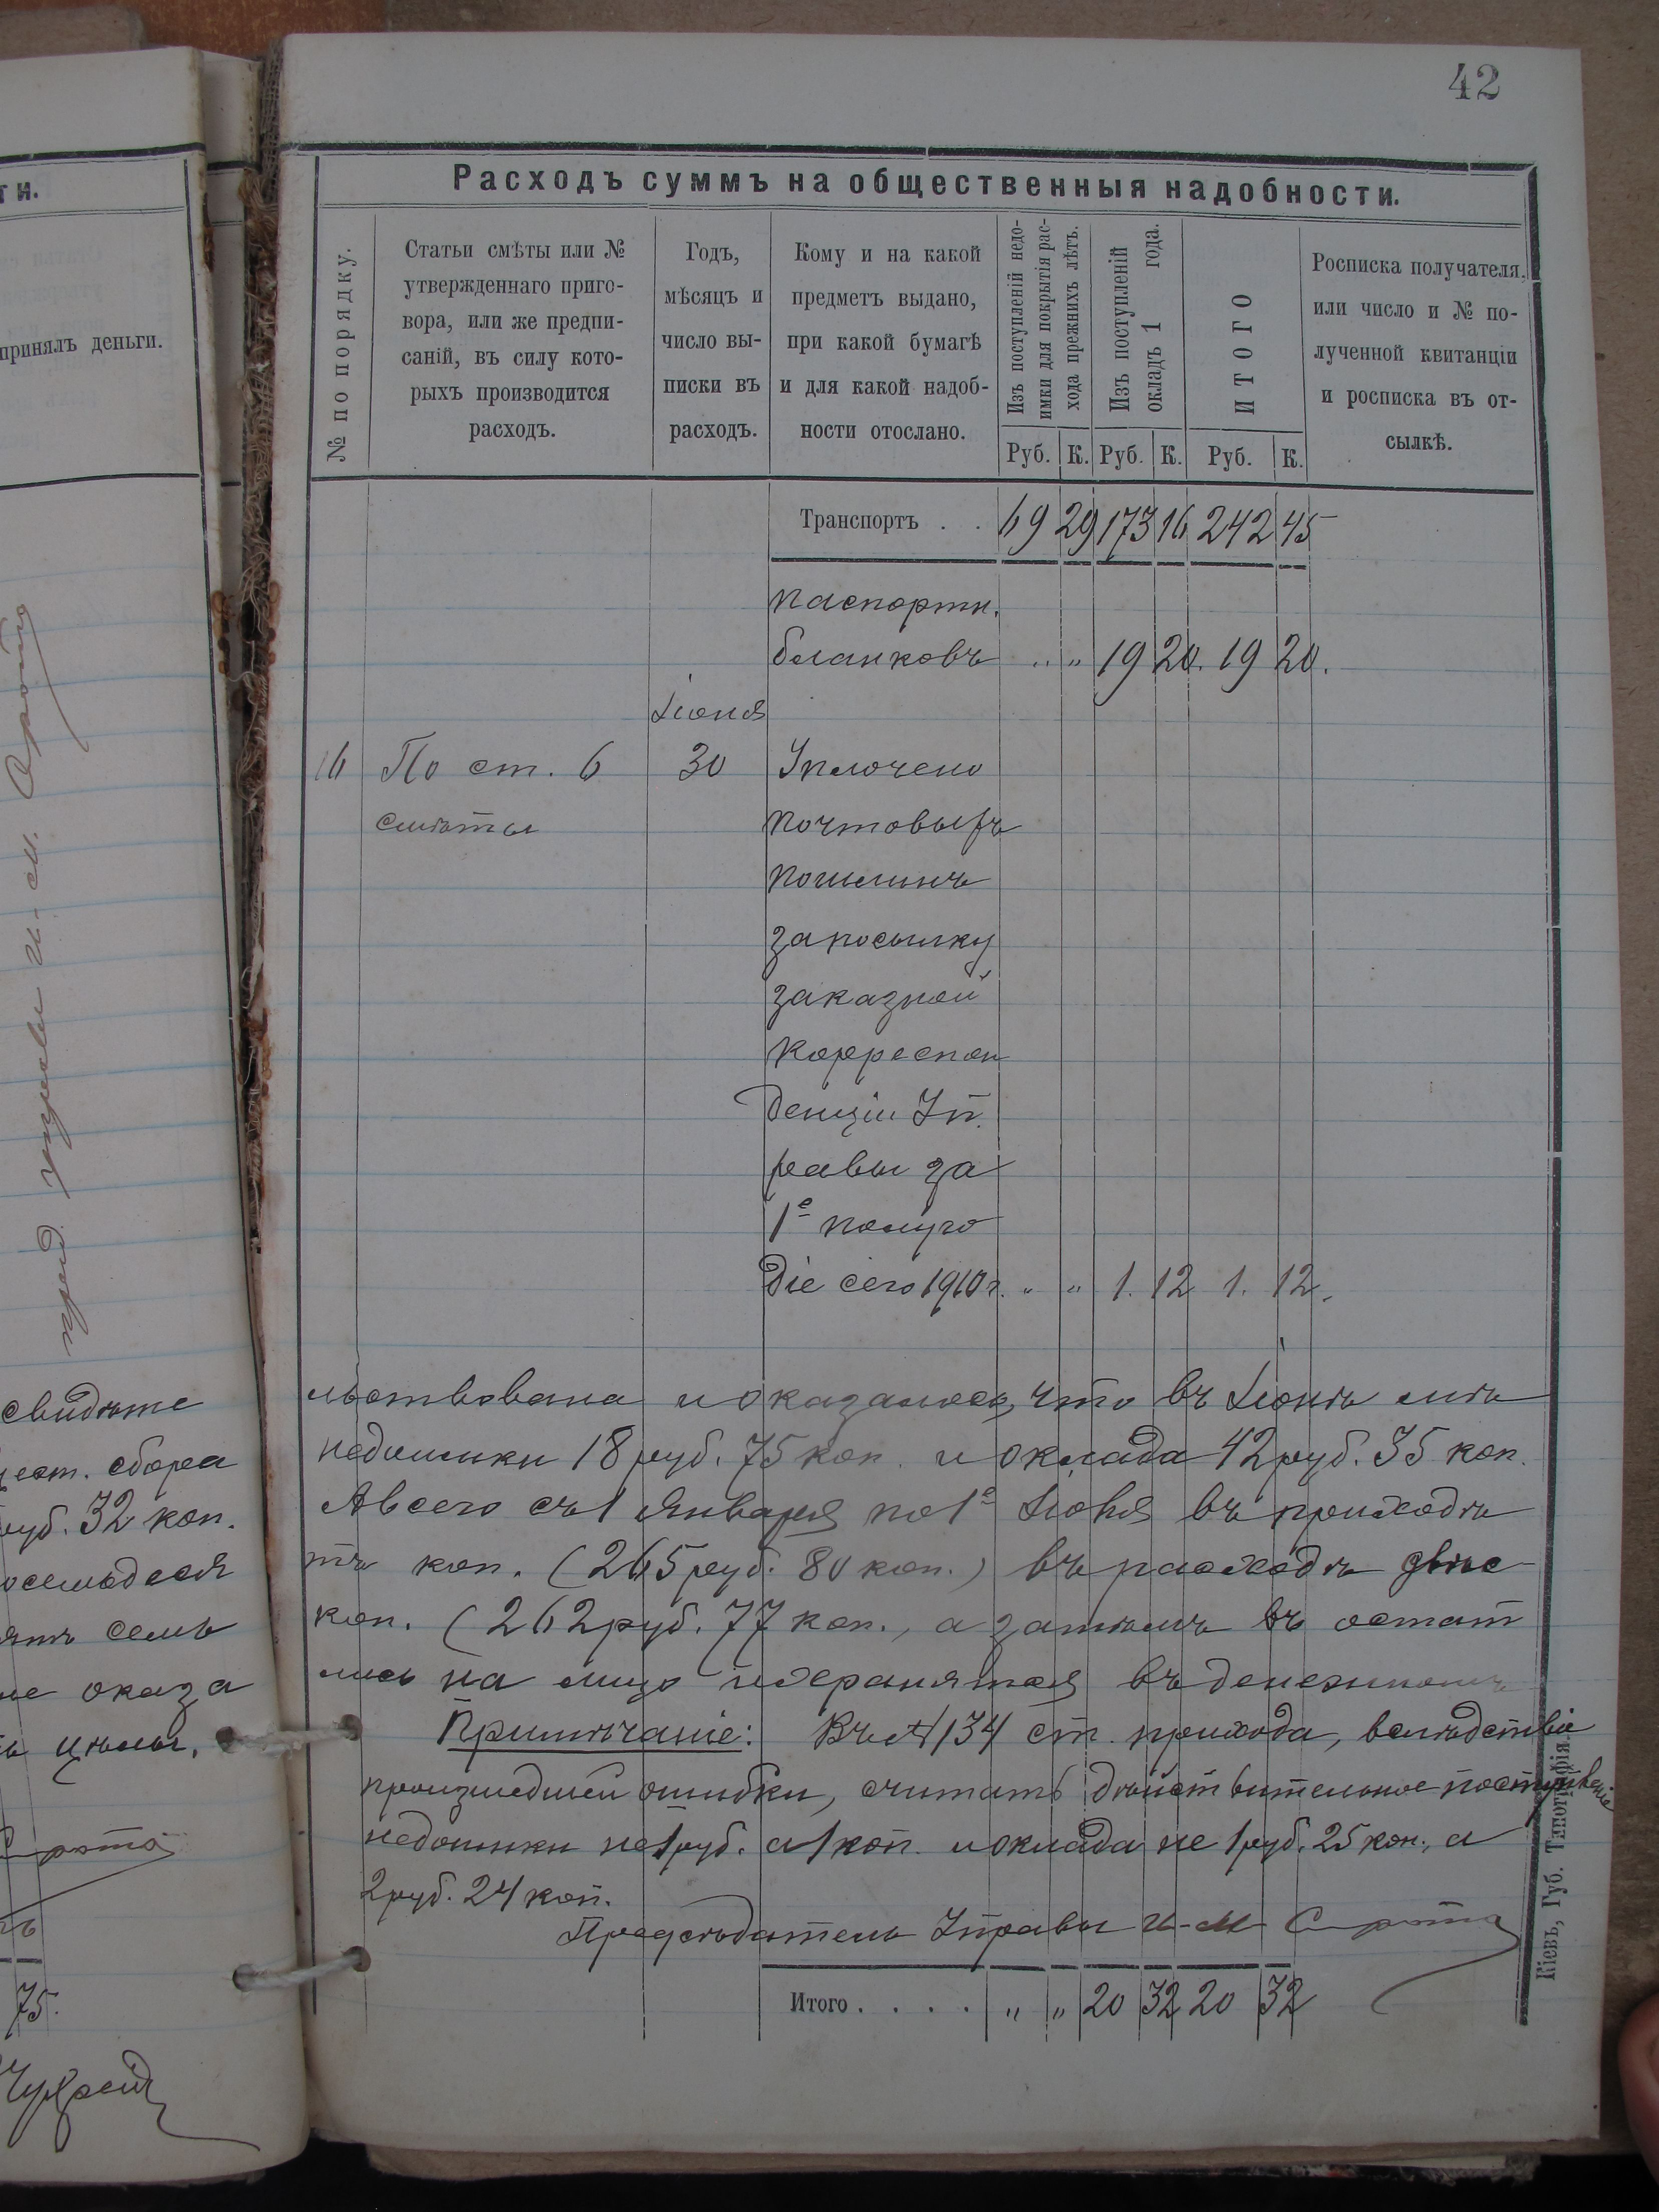 42
ти.
принялъ деньги.
Расходъ суммъ на общественныя надобности.
№ по порядку.
Статьи смѣты или №
утвержденнаго приго-
вора, или же предпи-
саній, въ силу кото-
рыхъ производится
расходъ.
Годъ,
мѣсяцъ и
число вы-
писки въ
расходъ.
Кому и на какой
предметъ выдано,
при какой бумагѣ
и для какой надоб-
ности отослано.
Изъ поступленій недо-
имки для покрытія рас-
хода прежнихъ лѣтъ.
Изъ поступленій
окладъ 1 года.
ИТОГО
Росписка получателя,
или число и № по-
лученной квитанціи
и росписка въ от-
сылкѣ.
Руб. К. Руб. К. Руб. К.
Транспортъ . . 69 29 173 16 242 45
паспортн.
бланковъ „ „ 19 20. 19 20.
Іюня
16 По ст. 6 30 Уплочено
смѣты почтовыхъ
пошлинъ
за посылку
заказной
корреспон
денціи Уп.
равы за
1е полуго
діе сего 1910 г. „ „ 1. 12 1. 12.
свидѣте
льствована и оказалось, что въ Іюнѣ мѣ
ест. сбора
недоимки 18 руб. 75 коп. и оклада 42 руб. 35 коп.
руб. 32 коп.
А всего съ 1 Января по 1е Іюля въ приходѣ
осемьдеся
тъ коп. (265 руб. 80 коп.) въ расходѣ двѣс
ять семь
коп. (262 руб. 77 коп., а затѣмъ въ остат
не оказа
лись на лицо и хранятся въ денежномъ
ь цѣлы.
Примѣчаніе: Въ № 134 ст. прихода, вслѣдствіе
произшедшей ошибки, считать дѣйствительное поступленіе
недоимки не 1 руб. а 1 коп. и оклада не 1 руб. 25 коп., а
2 руб. 24 коп.
Предсѣдатель Управы И-М Сирота
Итого . . . . „ „ 20 32 20 32
75.
Кіевъ, Губ. Типографія.